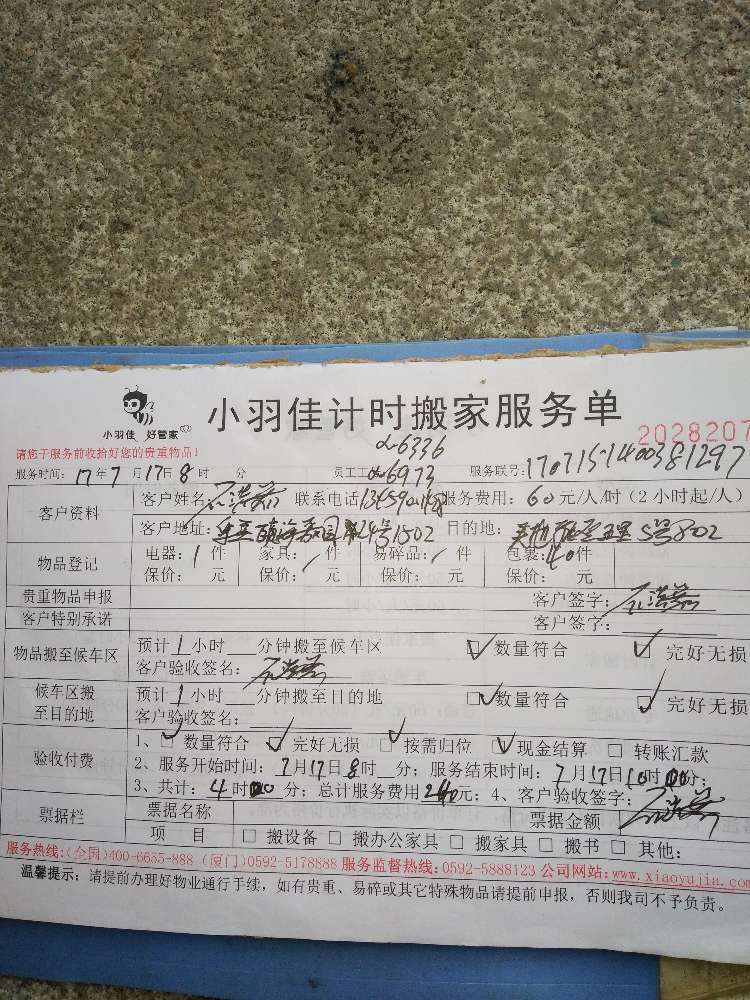 小羽佳 好管家
小羽佳计时搬家服务单
2028207
请您于服务前收拾好您的贵重物品!
6336
服务时间: 17年7月17日8时 分 员工工 6973 服务联号: 1707151400381297
客户资料 客户姓名: 联系电话 服务费用: 60元/人/时(2小时起/人)
客户地址: 24号1502 目的地: 5号802
物品登记 电器: 1件 家具: 件 易碎品: 件 包裹: 40件
保价: 元 保价: 元 保价: 元 保价: 元
贵重物品申报 客户签字:
客户特别承诺 客户签字:
物品搬至候车区 预计1小时 分钟搬至候车区 ☑数量符合 ☑完好无损
客户验收签名:
候车区搬至目的地 预计1小时 分钟搬至目的地 ☑数量符合 ☑完好无损
客户验收签名:
验收付费 1、☑数量符合 ☑完好无损 ☑按需归位 ☑现金结算 □转账汇款
2、服务开始时间: 7月17日8时 分; 服务结束时间: 7月17日10时00分;
3、共计: 4时00分; 总计服务费用240元; 4、客户验收签字:
票据栏 票据名称 票据金额
项 目 □搬设备 □搬办公家具 □搬家具 □搬书 □其他:
服务热线:(全国)400-6685-888 (厦门)0592-5178888 服务监督热线: 0592-5888123 公司网站: www.xiaoyujia.com
温馨提示: 请提前办理好物业通行手续, 如有贵重、易碎或其它特殊物品请提前申报, 否则我司不予负责。